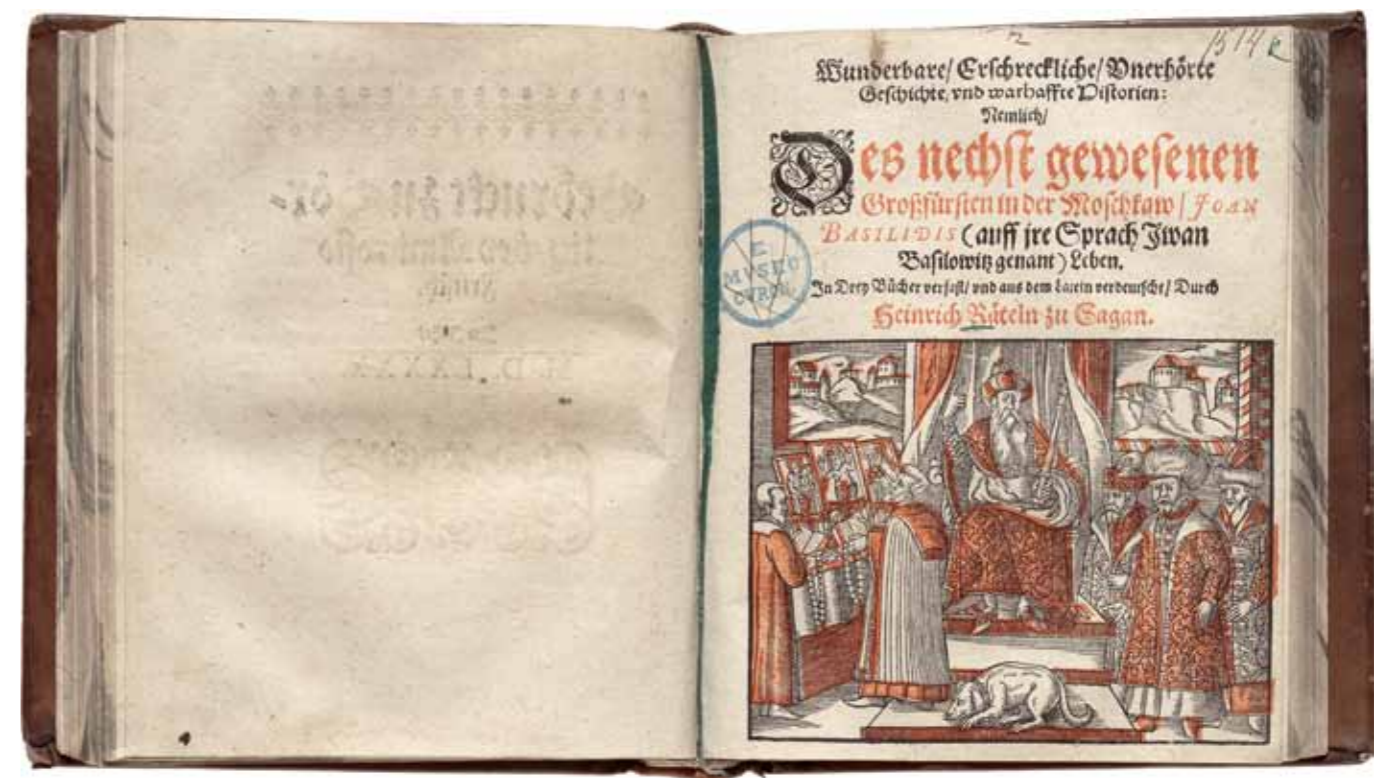 15142
Wunderbare/ Erschreckliche/ Vnerhörte
Geschichte, vnd warhaffte Historien:
Nemlich/
Des nechst gewesenen
Großfürsten in der Moschkaw/ JOAN
BASILIDIS (auff jre Sprach Iwan
Basilowitz genant) Leben.
In Drey Bücher verfast/ vnd aus dem Latein verdeutscht/ Durch
Heinrich Räteln zu Sagan.
E
MVSEO